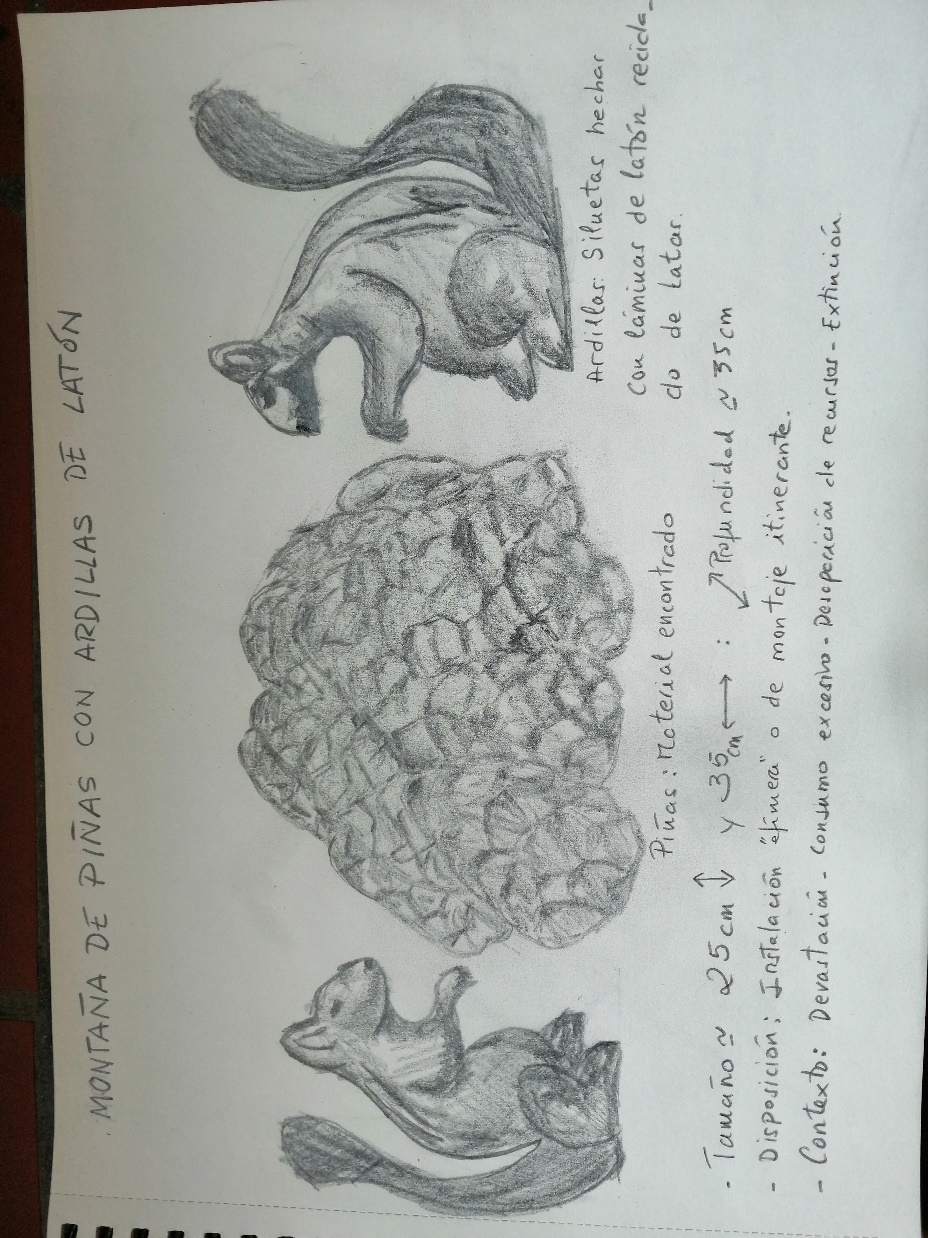 MONTAÑA DE PIÑAS CON ARDILLAS DE LATÓN
Ardillas: Siluetas hechar
con láminas de latón recicla_
do de latar.
Piñas: Material encontrado
- Tamaño ≃ ≃25cm ↕ y 35cm ⟷ : ↗↙ Profundidad ≃ 35cm
- Disposición: Instalación "efímera" o de montaje itinerante.
- Contexto: Devastación - Consumo excesivo - Desaparición de recursos - Extinción.